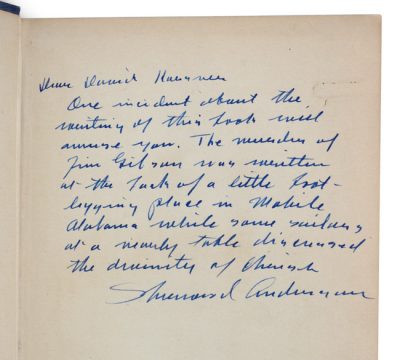 Dear David
One incident about the
writing of this book will
amuse you. The murder of
Jim Gibson was written
at the back of a little boot-
legging place in Mobile
Alabama while some sailors
at a nearby table discussed
the divinity of Christ
Sherwood Anderson